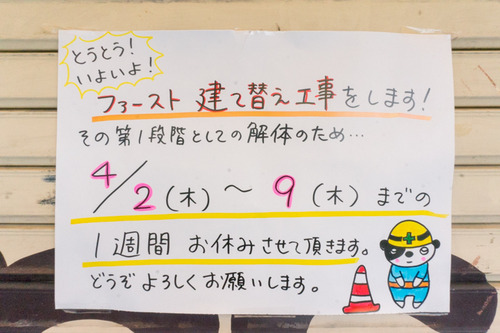 とうとう!
いよいよ!
ファースト 建て替え工事をします!
その第1段階としての解体のため…
4/2(木)~9(木)までの
1週間 お休みさせて頂きます。
どうぞよろしくお願いします。